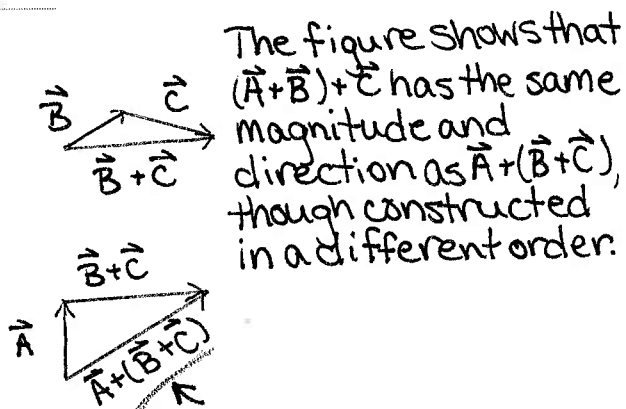 The figure shows that
(A⃗+B⃗)+C⃗ has the same
magnitude and
direction as A⃗+(B⃗+C⃗),
though constructed
in a different order.
B⃗
C⃗
B⃗+C⃗
B⃗+C⃗
A⃗
A⃗+(B⃗+C⃗)